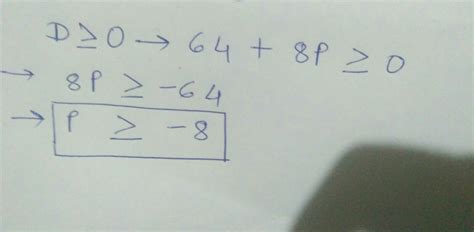 D ≥ 0 → 64 + 8P ≥ 0
→ 8P ≥ -64
→ P ≥ -8